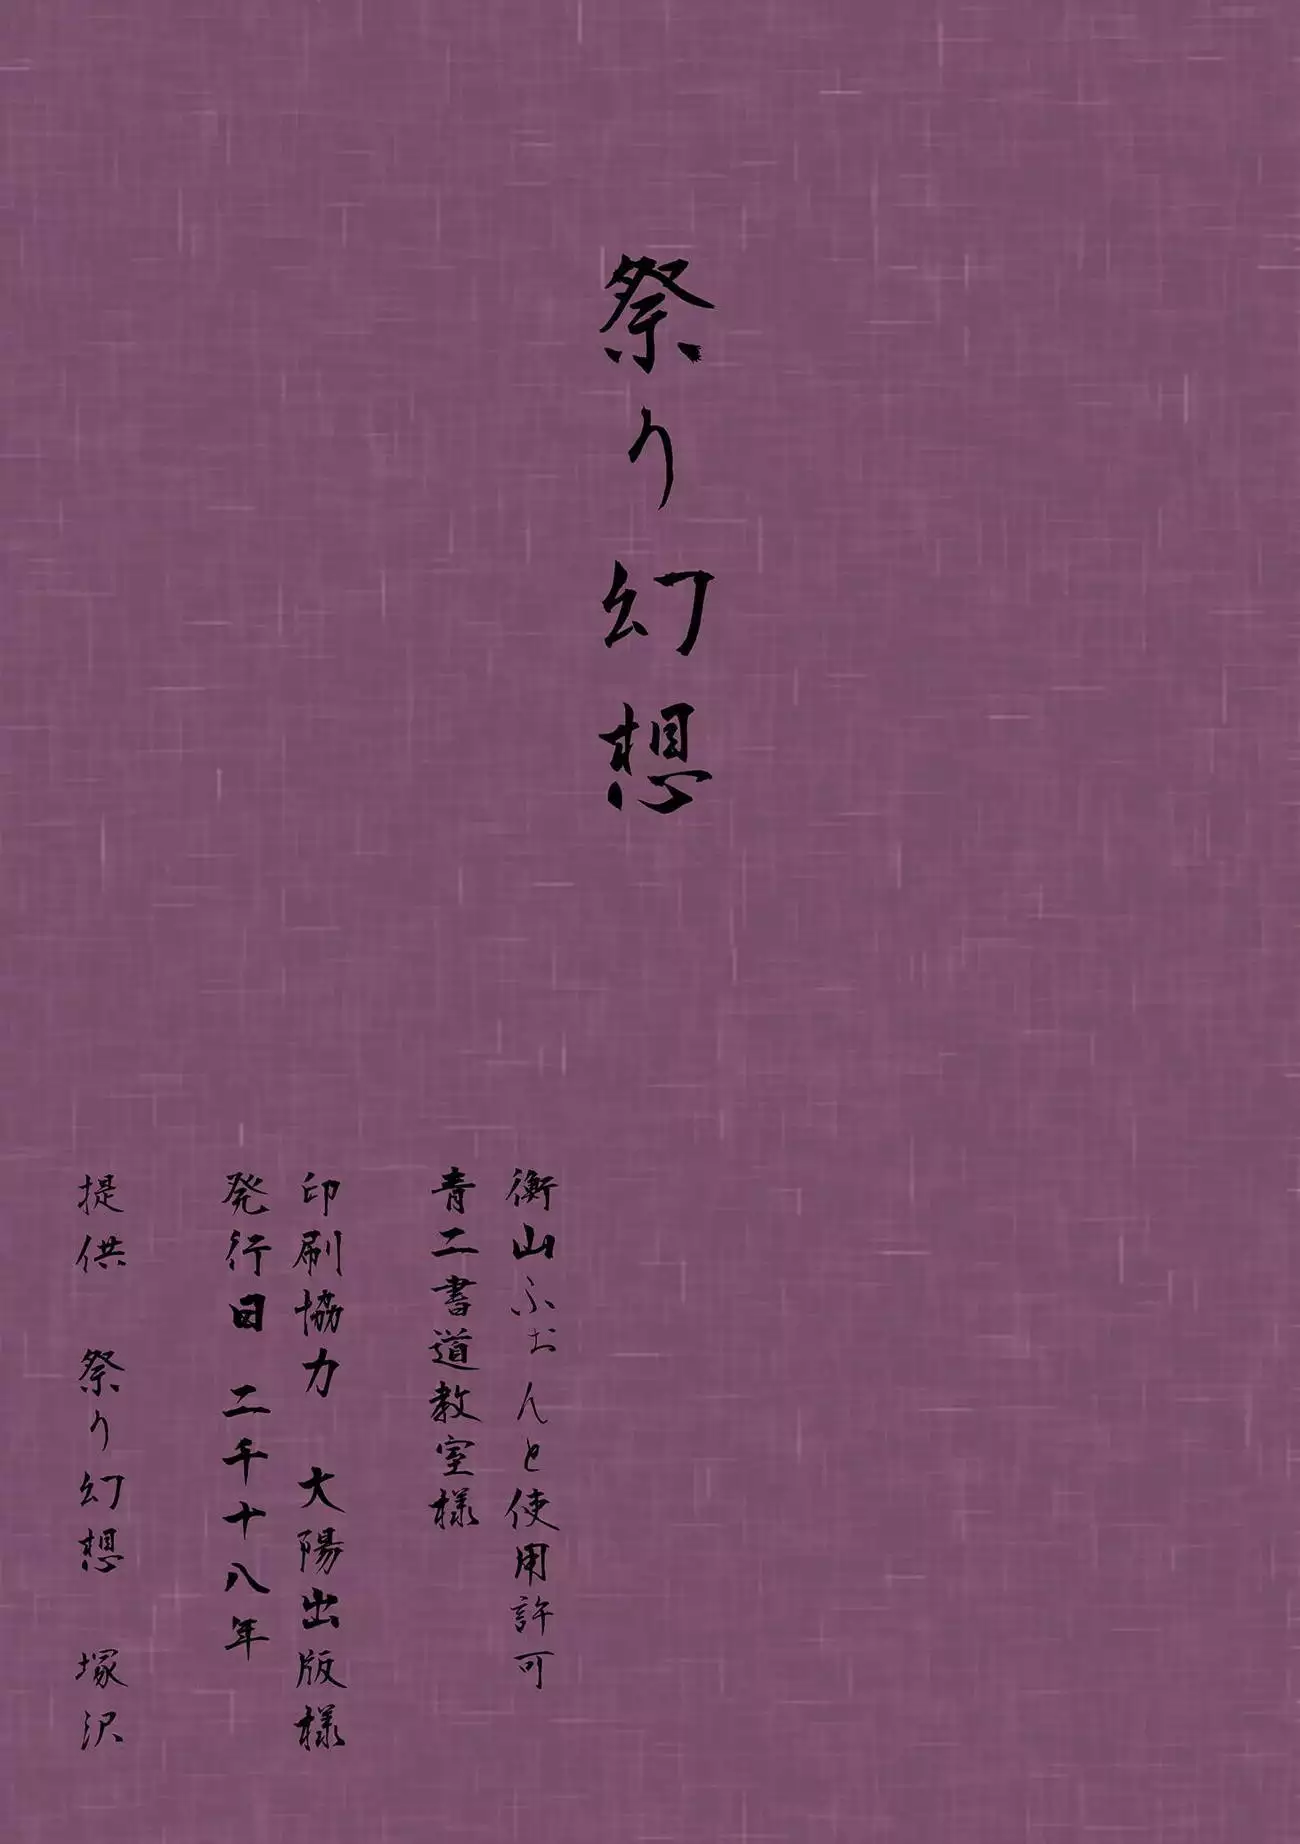 祭り幻想
衡山ふぉんと使用許可
青二書道教室様
印刷協力　大陽出版様
発行日　二千十八年
提供　祭り幻想　塚沢